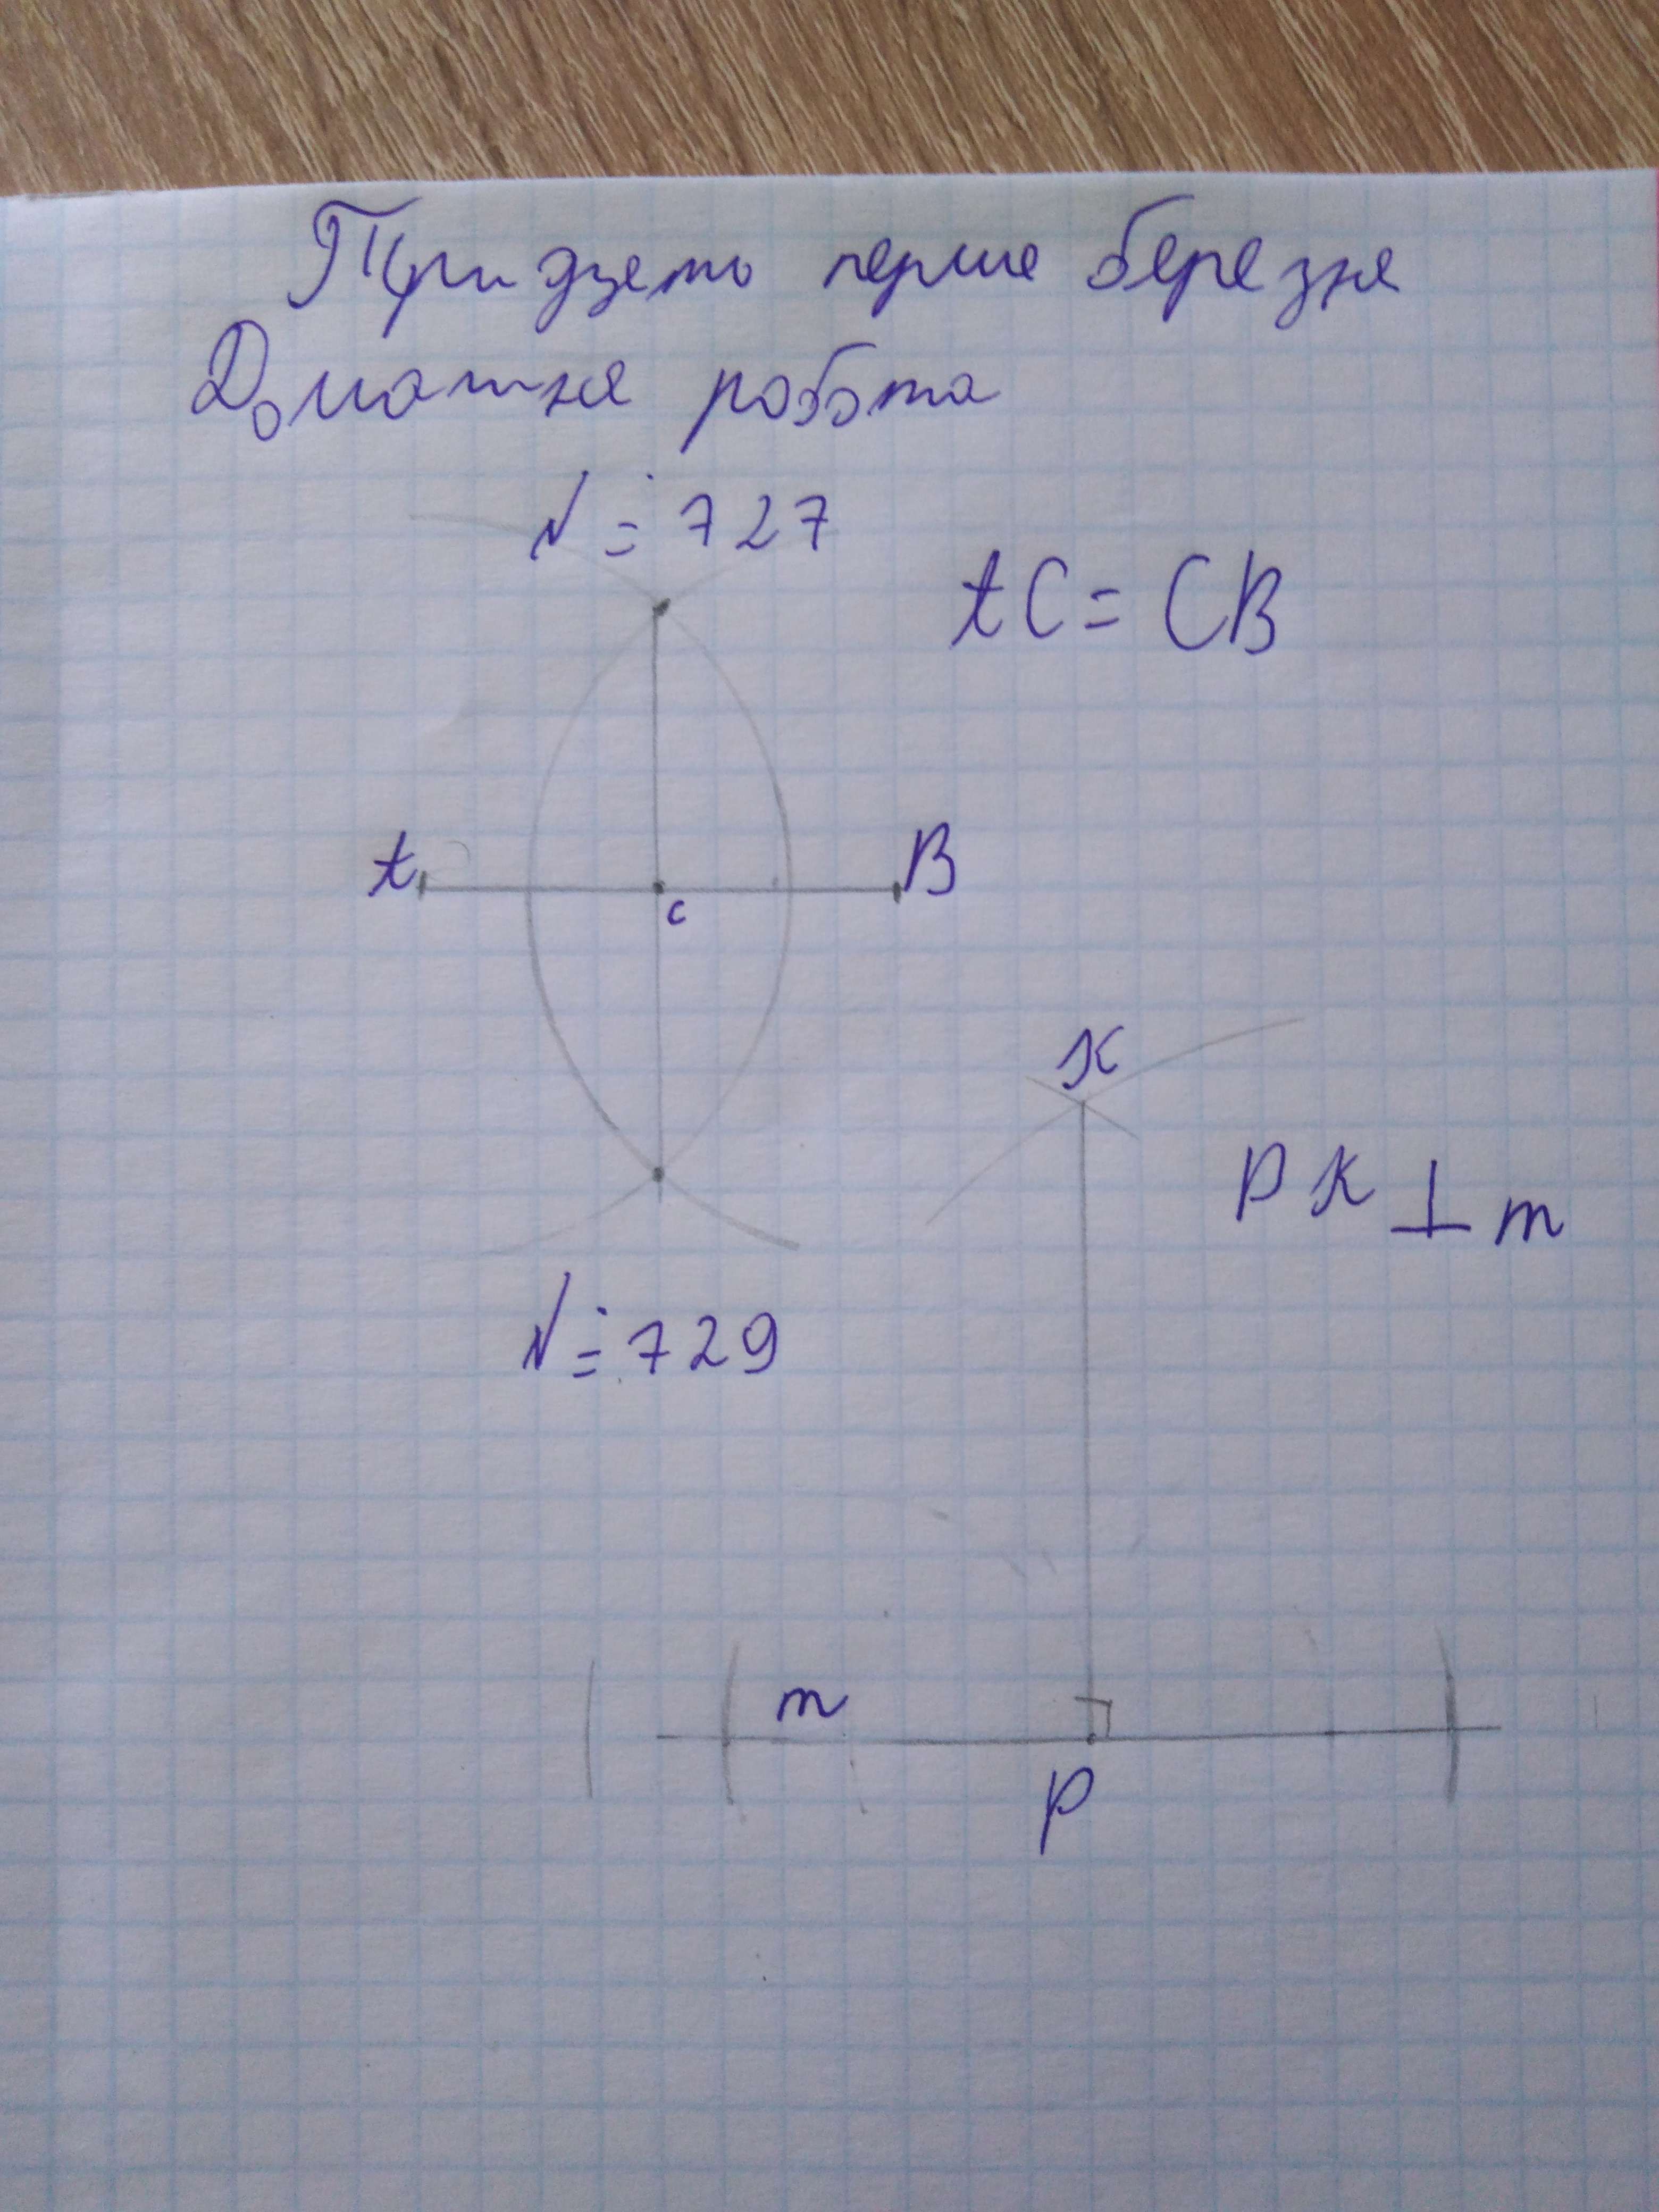 Тридцять перше березня
Домашня робота
№ 727
AC = CB
A
B
C
K
PK ⊥ m
№ 729
m
P